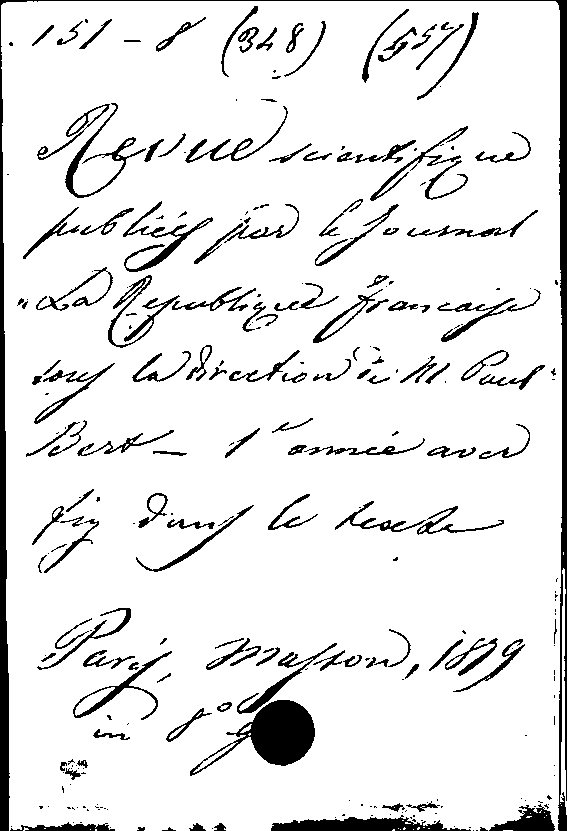 151 - 8 (348) (557)
Revue scientifique
publiée par le Journal
"La Republique francaise
sous la direction de M. Paul
Bert - 1re année avec
fig dans le texte
Paris, Masson, 1879
in 8° g